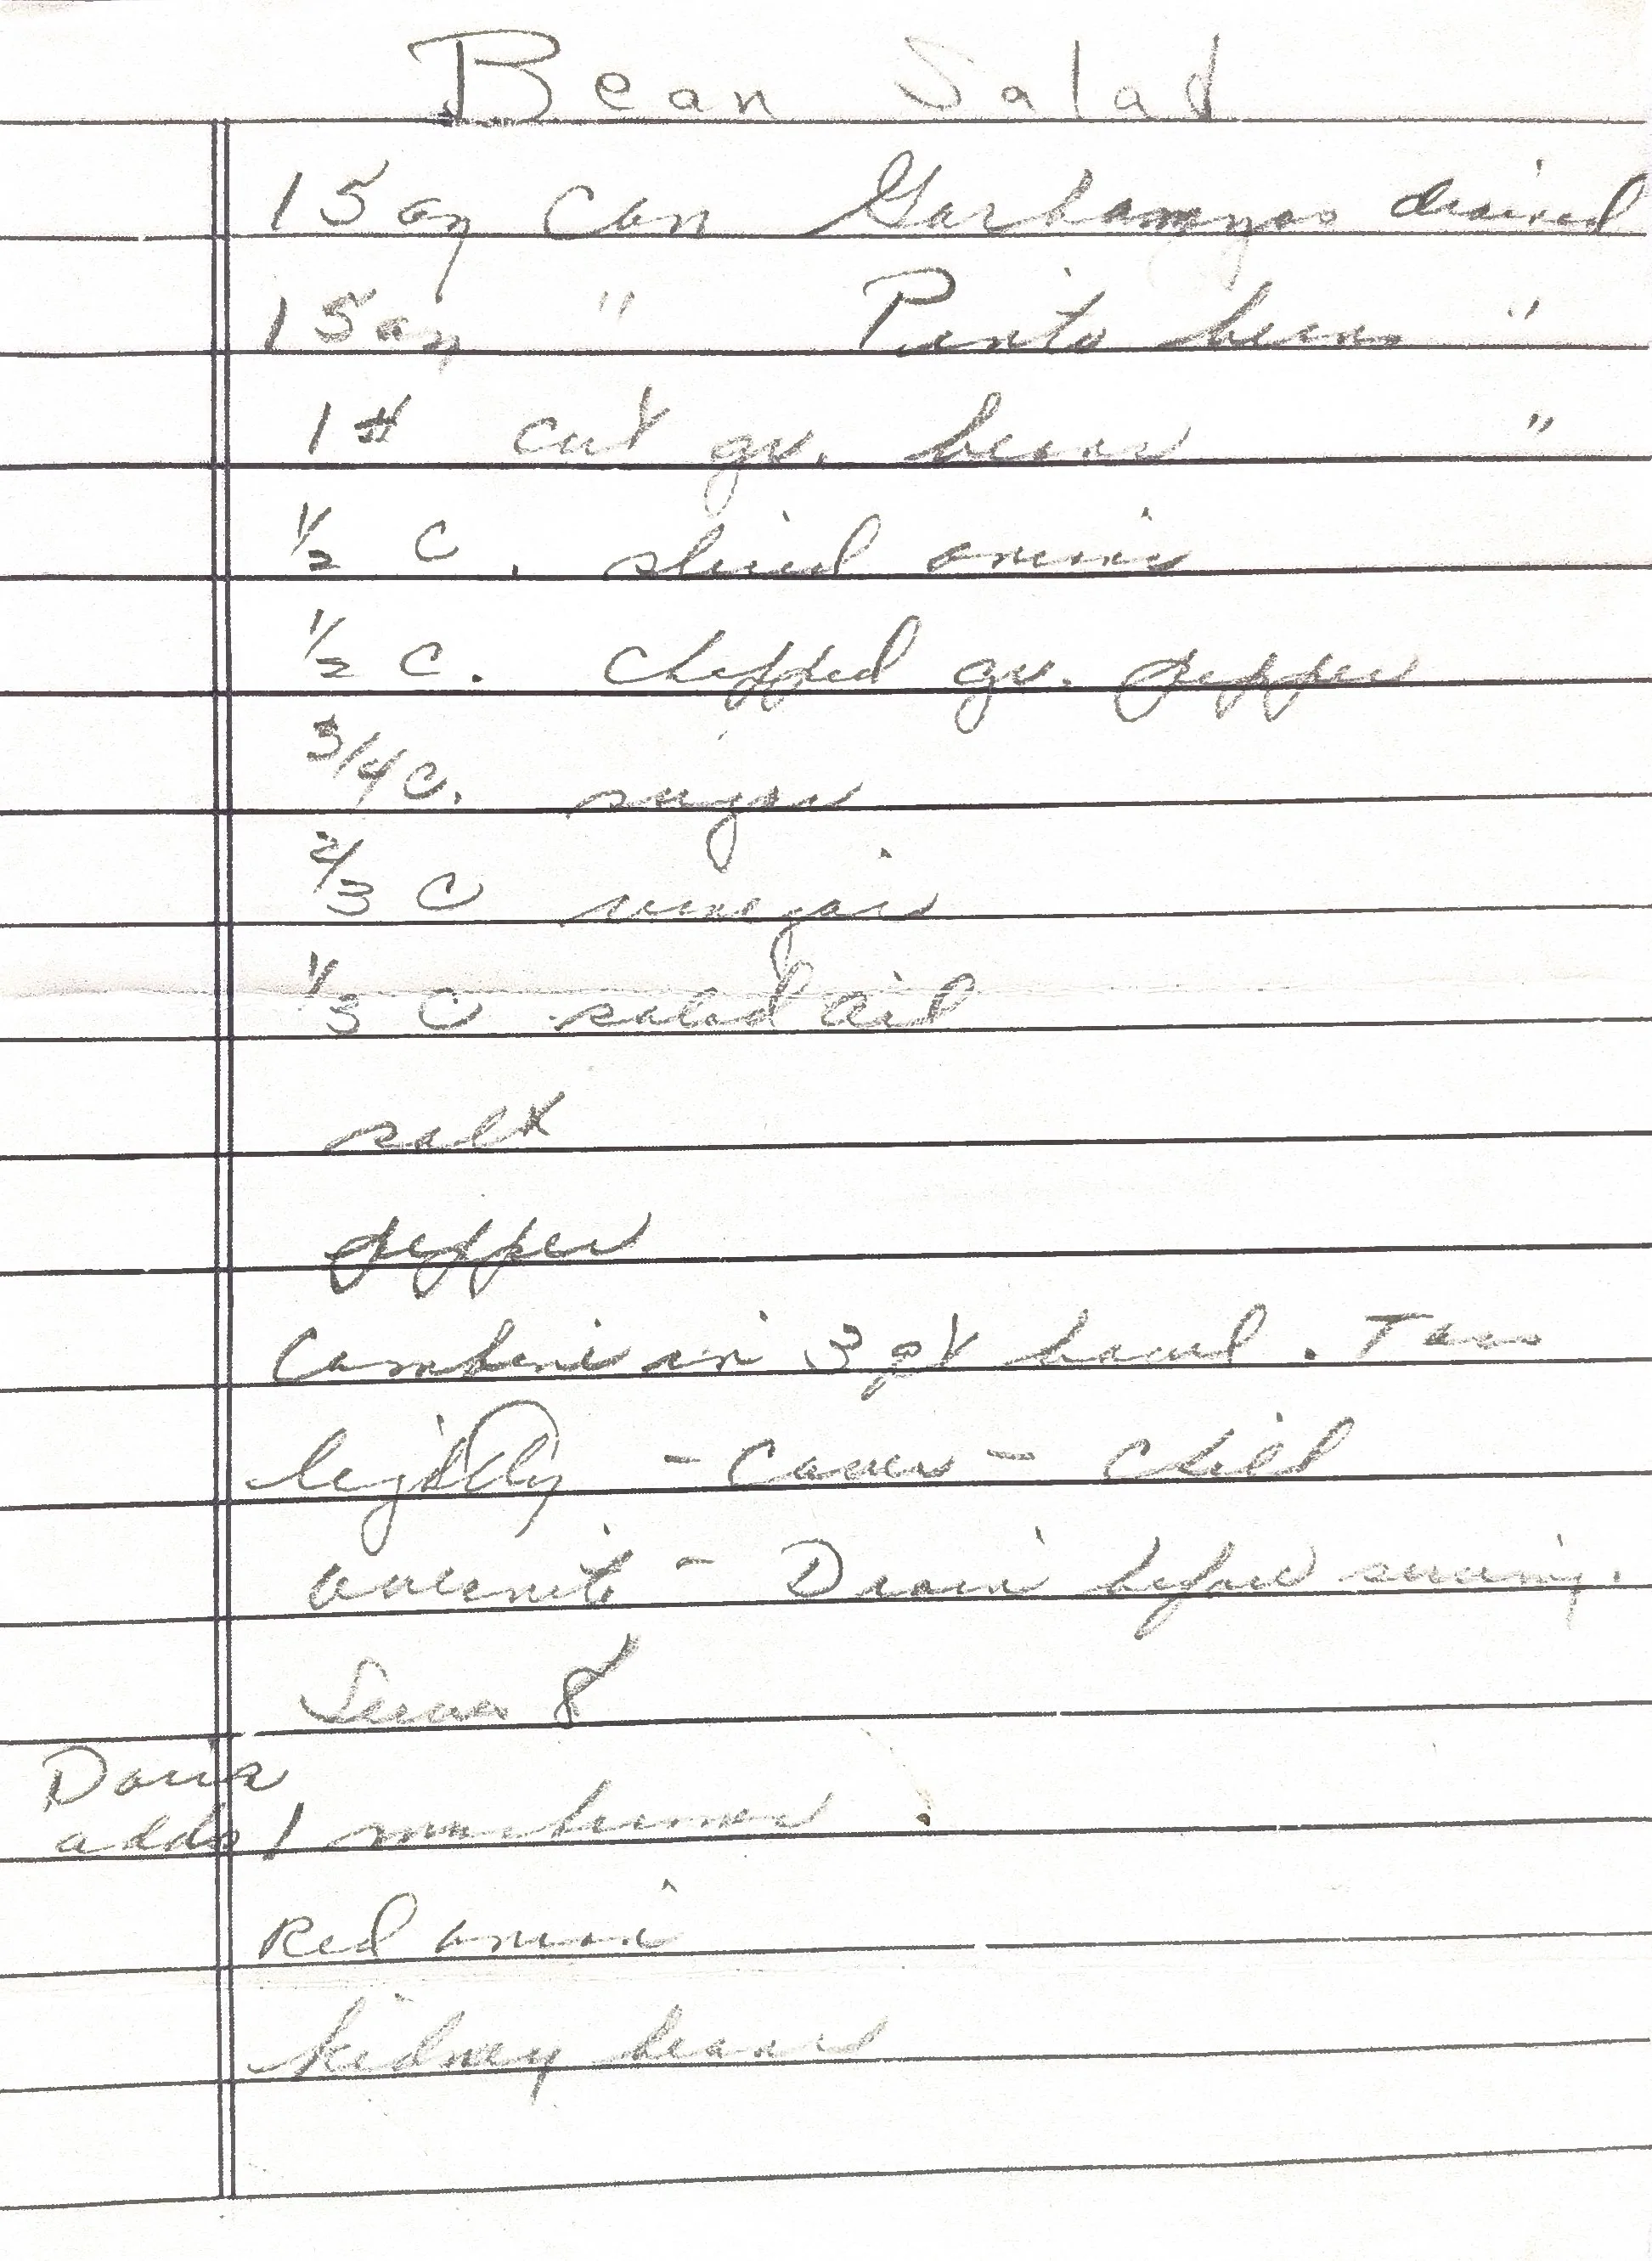 Bean Salad
15 oz Can Garbanzos drained
15 oz " Pinto beans "
1# cut gr. beans "
1/2 c. sliced onion
1/2 c. chopped gr. pepper
3/4 c. sugar
2/3 c vinegar
1/3 c salad oil
salt
pepper
Combine in 3 qt bowl. Toss
lightly - Cover - Chill
overnite - Drain before serving.
Serves 8
Doris
adds 1 mushrooms
Red onion
kidney beans